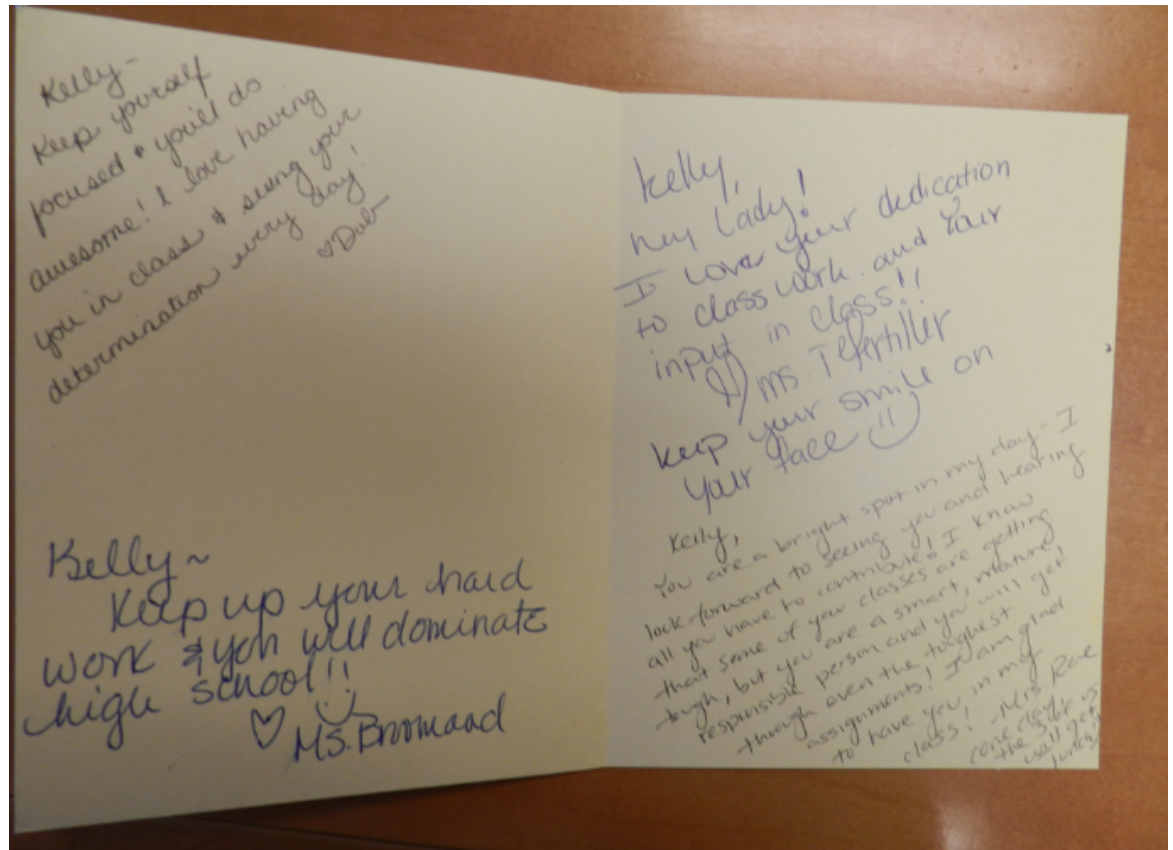 Kelly-
Keep yourself
focused & you'll do
awesome! I love having
you in class & seeing your
determination every day!
♡Dub
Kelly~
Keep up your hard
work & you will dominate
high school!!
♡ Ms. Broomand
Kelly,
hey Lady!
I love your dedication
to classwork and your
input in class!!
Ms Tefertiller
keep your smile on
your face
Kelly,
You are a bright spot in my day - I
look forward to seeing you and hearing
all you have to contribute! I know
that some of your classes are getting
tough, but you are a smart, mature,
responsible person and you will get
through even the toughest
assignments! I am glad
to have you in my
class! -Mrs Rae
(one day
the 3 of us
will get
lunch)